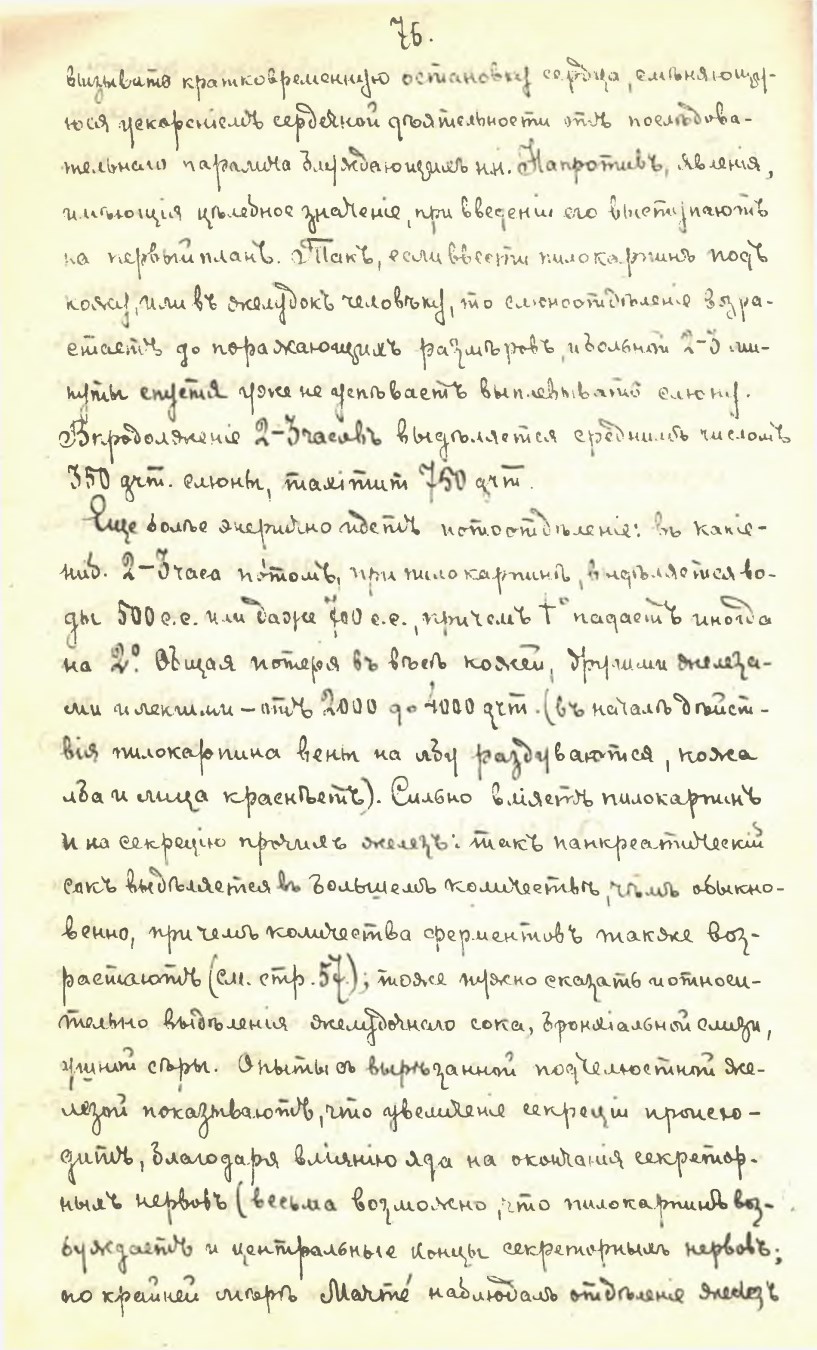 76.
вызывать кратковременную остановку сердца, смѣняющу-
юся ускореніемъ сердечной дѣятельности отъ послѣдова-
тельнаго паралича блуждающихъ нн. Напротивъ, явленія,
имѣющія цѣлебное значеніе, при введеніи его выступаютъ
на первый планъ. Такъ, если ввести пилокарпинъ подъ
кожу, или въ желудокъ человѣку, то слюноотдѣленіе возра-
стаетъ до поражающихъ размѣровъ, и больной 2-3 ми-
нуты спустя уже не успѣваетъ выплевывать слюну.
Впродолженіе 2-3 часовъ выдѣляется среднимъ числомъ
350 grm. слюны, maximum 750 grm.
Еще болѣе энергично идетъ потоотдѣленіе: въ какіе-
ниб. 2-3 часа потомъ, при пилокарпинѣ, выдѣляется во-
ды 500 c.c. или даже 700 c.c., причемъ t° падаетъ иногда
на 2°. Общая потеря въ вѣсѣ кожей, другими железа-
ми и легкими – отъ 2000 до 4000 grm. (въ началѣ дѣйст-
вія пилокарпина вены на лбу раздуваются, кожа
лба и лица краснѣетъ). Сильно вліяетъ пилокарпинъ
и на секрецію прочихъ железъ: такъ панкреатическій
сокъ выдѣляется въ большемъ количествѣ, чѣмъ обыкно-
венно, причемъ количества ферментовъ также воз-
растаютъ (см. стр. 57.); тоже нужно сказать и относи-
тельно выдѣленія желудочнаго сока, бронхіальной слизи,
ушной сѣры. Опыты съ вырѣзанной подчелюстной же-
лезой показываютъ, что увеличеніе секреціи происхо-
дитъ, благодаря вліянію яда на окончанія секретор-
ныхъ нервовъ (весьма возможно, что пилокарпинъ воз-
буждаетъ и центральные концы секреторныхъ нервовъ;
по крайней мѣрѣ Marmé наблюдалъ отдѣленіе железъ